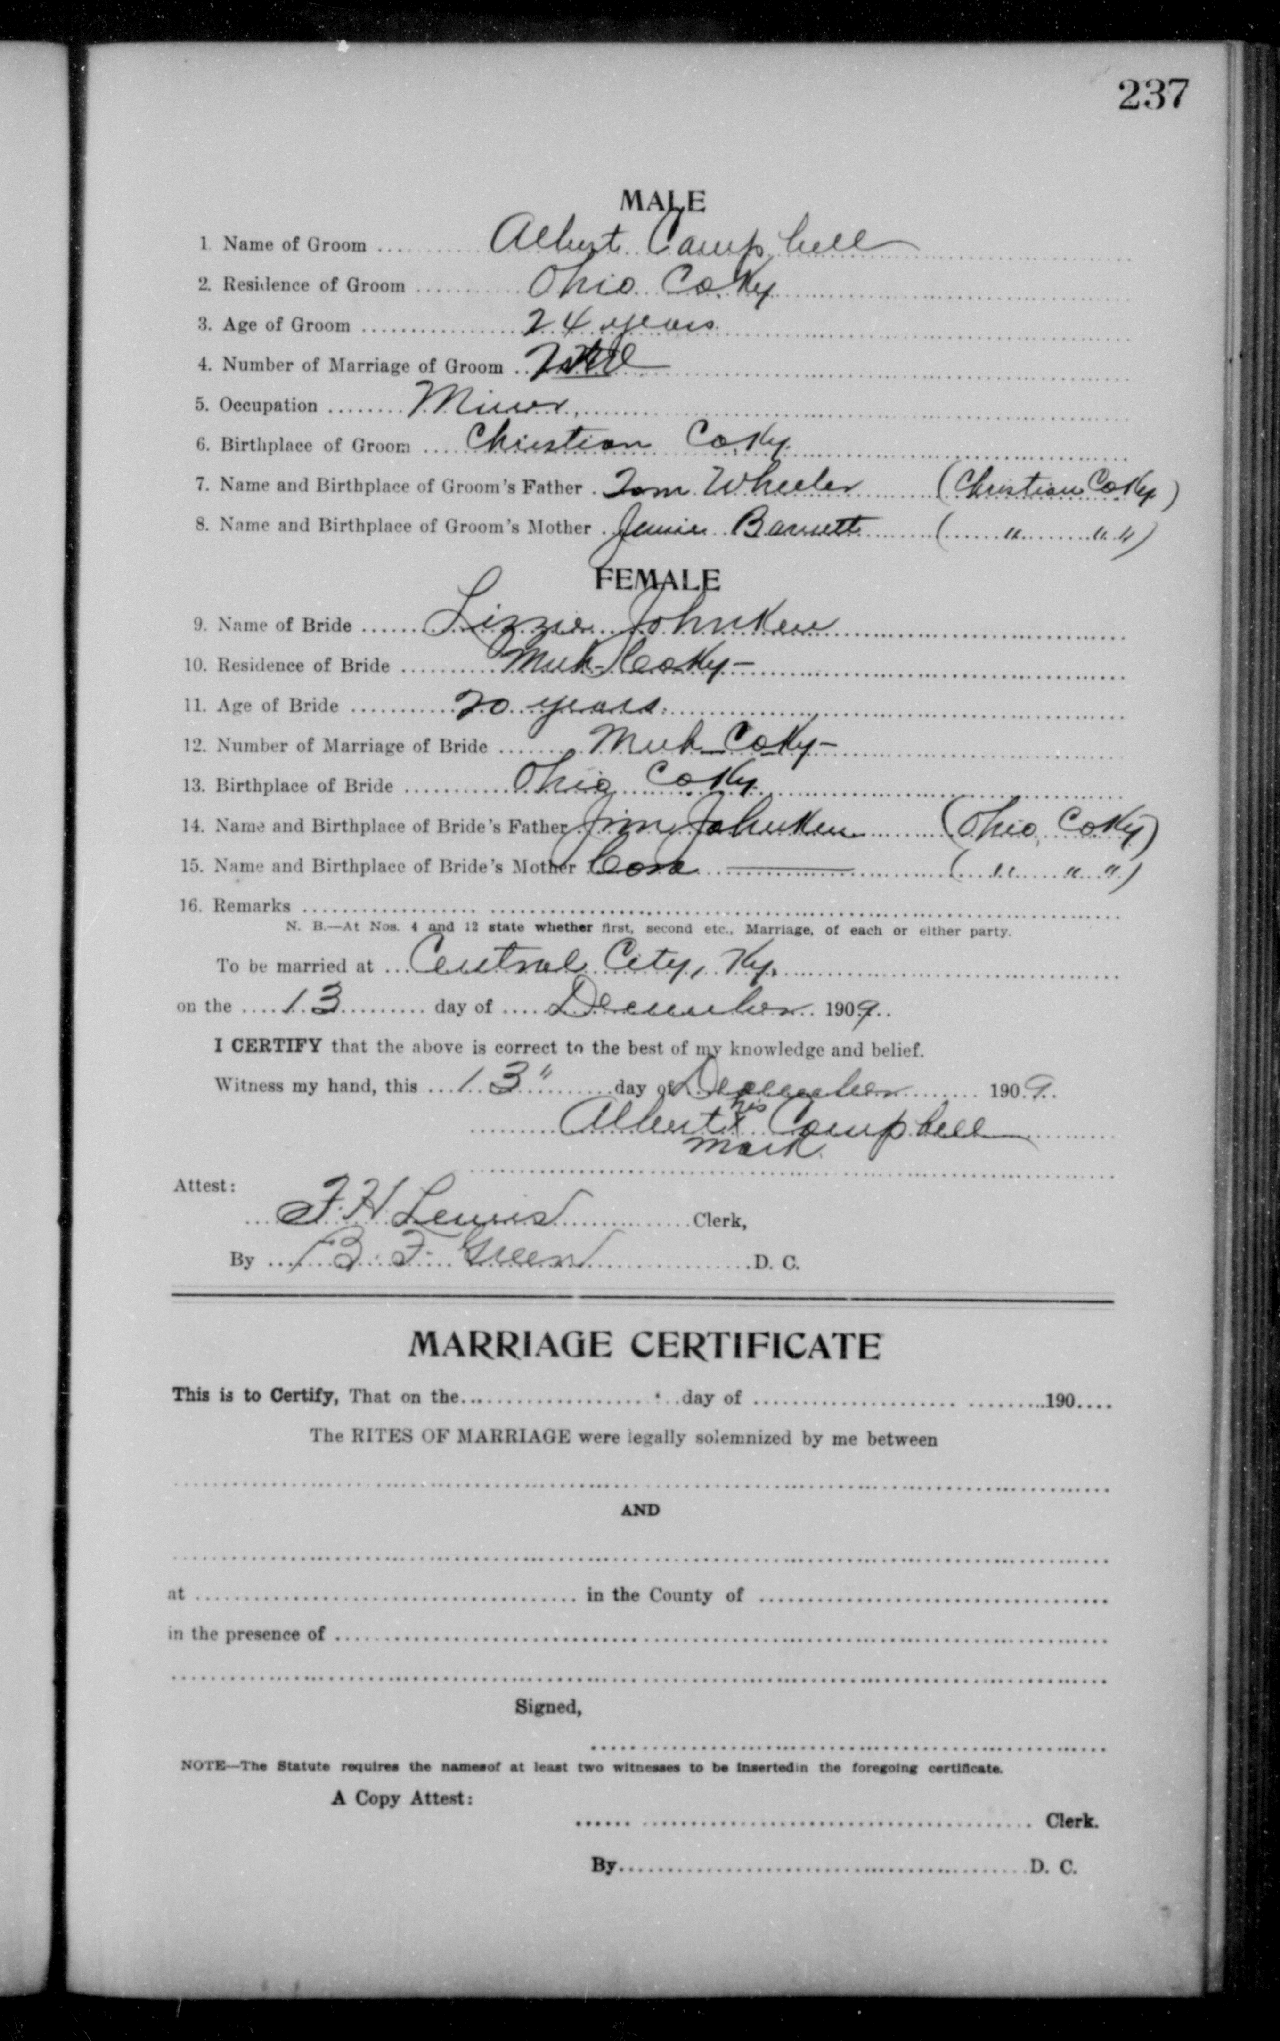 237
MALE
1 Name of Groom Albert Campbell
2. Residence of Groom Ohio Co. Ky
3. Age of Groom 24 years
4. Number of Marriage of Groom
5. Occupation Miner
6. Birthplace of Groom Christian Co. Ky.
7. Name and Birthplace of Groom's Father Tom Wheeler (Christian Co Ky)
8. Name and Birthplace of Groom's Mother Jennie Barnett ( " " " )
FEMALE
9. Name of Bride Lizzie
10. Residence of Bride Co Ky-
11. Age of Bride 20 years.
12. Number of Marriage of Bride Co Ky-
13. Birthplace of Bride Ohio Co Ky
14. Name and Birthplace of Bride's Father Jim (Ohio Co Ky)
15. Name and Birthplace of Bride's Mother Cora — ( " " " )
16. Remarks
N. B.—At Nos. 4 and 12 state whether first, second etc., Marriage, of each or either party.
To be married at Central City, Ky.
on the 13 day of December 1909
I CERTIFY that the above is correct to the best of my knowledge and belief.
Witness my hand, this 13" day of December 1909
Albert his x mark Campbell
Attest:
F. H Lewis Clerk,
By B. F. Green D. C.
MARRIAGE CERTIFICATE
This is to Certify, That on the day of 190
The RITES OF MARRIAGE were legally solemnized by me between
AND
at in the County of
in the presence of
Signed,
NOTE—The Statute requires the namesof at least two witnesses to be insertedin the foregoing certificate.
A Copy Attest:
Clerk.
By D. C.